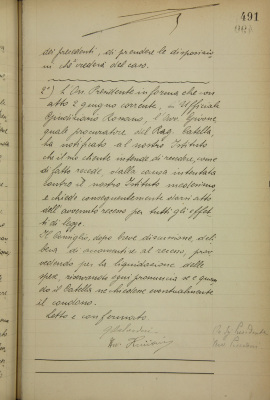 491
dei precedenti, di prendere le disposizio
ni che crederà del caso.
2°) L'On. Presidente informa che con
atto 2 giugno corrente, Ufficiale
Giudiziario Romano, l'Avv. Givone,
quale procuratore del Rag. Catella,
ha notificato al nostro Istituto
che il suo cliente intende di recedere, come
di fatto recede, dalla causa intentata
contro il nostro Istituto medesimo,
e chiede conseguentemente darsi atto
dell'avvenuto recesso per tutti gli effet
ti di legge.
Il Consiglio, dopo breve discussione, deli
bera di acconsentire al recesso, prov
vedendo per la liquidazione delle
spese, riservando ogni pronuncia se e quan
do il Catella ne chiedesse eventualmente
il condono.
Letto e confermato